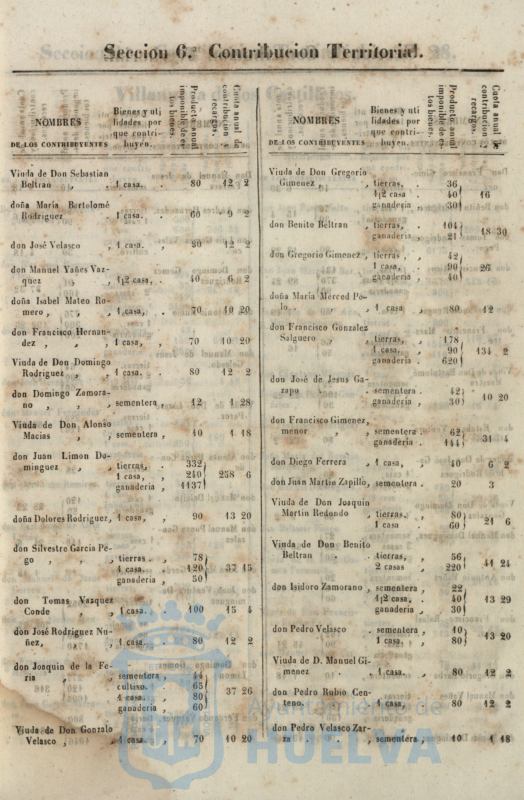 Seccion 6.ª Contribucion Territorial.
NOMBRES
DE LOS CONTRIBUYENTES
Bienes y uti
lidades por
que contri-
buyen.
Producto anual
imponible de es-
tos bienes.
Cuota anual de
contribucion y
recargos.
Viuda de Don Sebastian
Beltran , . 1 casa. . 80 12 2
doña María Bartolomé
Rodriguez . 1 casa. . 60 9 2
don José Velasco , 1 casa. . 80 12 2
don Manuel Yañes Vaz-
quez , , 1|2 casa, . 40 6 2
doña Isabel Mateo Ro-
mero , , , 1 casa, . 70 10 20
don Francisco Hernan-
dez , , , 1 casa, , 70 10 20
Viuda de Don Domingo
Rodriguez , , 1 casa. . 80 12 2
don Domingo Zamora-
no , , , sementera , 12 1 28
Viuda de Don Alonso
Macias , , sementera , 10 1 18
don Juan Limon Do-
minguez , , tierras, . 332
1 casa, , 240 258 6
ganadería , 1137
doña Dolores Rodriguez, 1 casa, , 90 13 20
don Silvestre Garcia Pe-
go , , , tierras , , 78
1 casa. . 120 37 15
ganadería , 50
don Tomas Vazquez
Conde , , 1 casa. . 100 15 4
don José Rodriguez Nu-
ñez, , 1 casa. . 80 12 2
don Joaquin de la Fe-
ria , , sementera , 44
cultiso. . 65
1 casa. . 80 37 26
ganadería , 60
Viuda de Don Gonzalo
Velasco , , 1 casa. , 70 10 20
NOMBRES
DE LOS CONTRIBUYENTES
Bienes y uti
lidades por
que contri-
buyen.
Producto anual
imponible de es-
tos bienes.
Cuota anual de
contribucion y
recargos.
Viuda de Don Gregorio
Gimenez , , tierras, . 36
1|2 casa . 40 16
ganadería . 30
don Benito Beltran , tierras, , 104
ganadería , 21 18 30
don Gregorio Gimenez , tierras , , 42
1 casa, . 90 26
ganadería , 40
doña María Merced Po-
lo. . . . 1 casa , 80 12
don Francisco Gonzalez
Salguero , , tierras, , 178
1 casa, . 90 134 2
ganadería , 620
don José de Jesus Ga-
zapo . . sementera . 42
ganadería . 30 10 20
don Francisco Gimenez,
menor , , sementera . 62
ganadería . 144 31 4
don Diego Ferrera , 1 casa, , 40 6 2
don Juan Martin Zapillo, sementera . 20 3
Viuda de Don Joaquin
Martin Redondo , tierras. . 80
1 casa . 60 21 6
Viuda de Don Benito
Beltran . . tierras, , 56
2 casas 220 41 24
don Isidoro Zamorano , sementera , 22
1|2 casa, . 40 13 29
ganadería , 30
don Pedro Velasco . sementera , 10
1 casa , 80 13 20
Viuda de D. Manuel Gi-
menez . . 1 casa, , 80 12 2
don Pedro Rubio Cen-
teno. . . 1 casa, , 80 12 2
don Pedro Velasco Zar-
za . . . sementera, 10 1 18
Ayuntamiento de
HUELVA